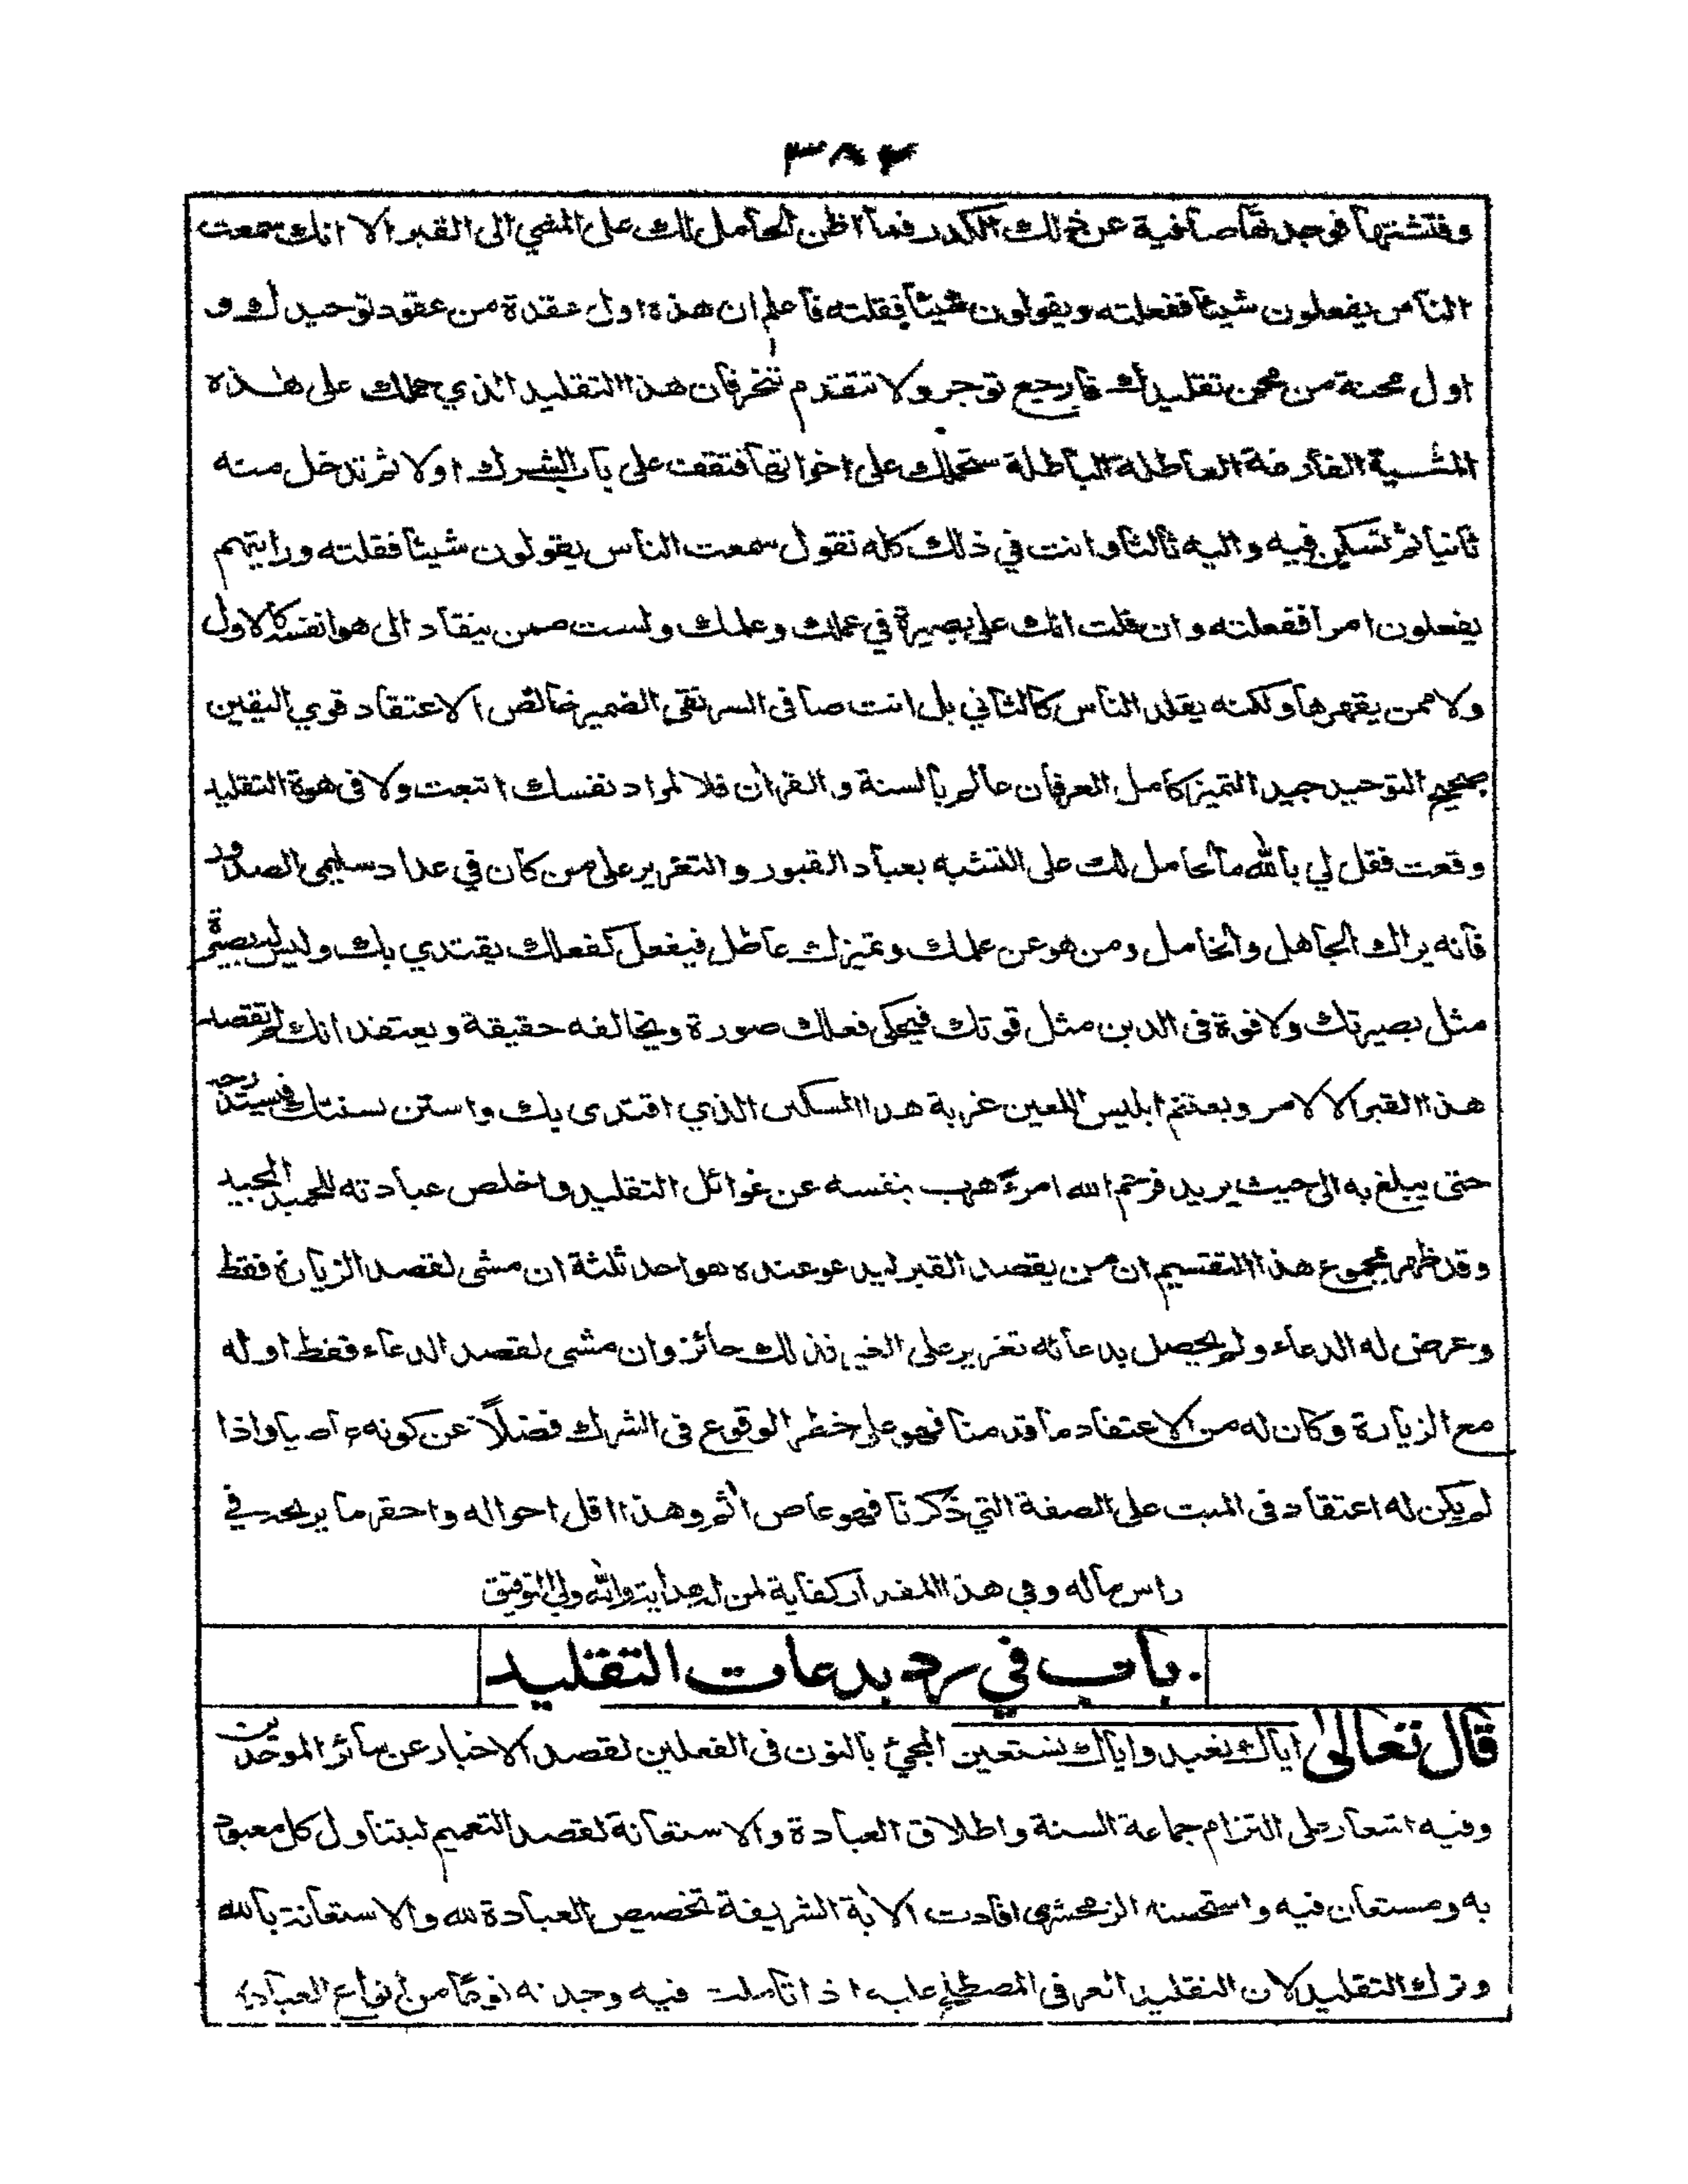 ٣٨٤
وفتشتها فوجدتها صافية عن ذلك الكدر فما اظن الحامل لك على المشي الى القبر الا انك سمعت
الناس يفعلون شيئا ففعلته ويقولون شيئا فقلته فاعلم ان هذه اول عقدة من عقود توحيدك و
اول محنة من محن تقليدك فارجع توجر ولا تتقدم تنخر فان هذا التقليد الذي حملك على هذه
المشية الفارغة العاطلة الباطلة ستحملك على اخواتها فتقف على باب الشرك اولا ثم تدخل منه
ثانيا ثم تسكن فيه واليه ثالثا وانت في ذلك كله تقول سمعت الناس يقولون شيئا فقلته ورايتهم
يفعلون امرا ففعلته وان قلت انك على بصيرة في عملك وعلمك ولست ممن ينقاد الى هوا نفسه كالاول
ولا ممن يقهرها ولكنه يقلد الناس كالثاني بل انت صافى السر نقى الضمير خالص الاعتقاد قوي اليقين
صحيح التوحيد جيد التميز كامل العرفان عالم بالسنة والقرآن فلا لمراد نفسك اتبعت ولا فى هوة التقليد
وقعت فقل لي بالله ما الحامل لك على التشبه بعباد القبور والتغرير على من كان في عداد سليمى الصدور
فانه يراك الجاهل والخامل ومن هو عن علمك وتميزك عاطل فيفعل كفعلك يقتدي بك وليس له بصيرة
مثل بصيرتك ولا قوة فى الدين مثل قوتك فيحكى فعلك صورة ويخالفه حقيقة ويعتقد انك لم تقصد
هذا القبر الا لامر ويغتنم ابليس اللعين غربة هذا المسكين الذي اقتدى بك واستن بسنتك فيستدرجه
حتى يبلغ به الى حيث يريد فرحم الله امرءً هرب بنفسه عن غوائل التقليد واخلص عبادته للحميد المجيد
وقد ظهر بمجموع هذا التقسيم ان من يقصد القبر ليدعو عنده هو احد ثلثة ان مشى لقصد الزيارة فقط
وعرض له الدعاء ولم يحصل بدعائه تغرير على الغير فذلك جائز وان مشى لقصد الدعاء فقط او له
مع الزيارة وكان له من الاعتقاد ما قدمنا فهو على خطر الوقوع فى الشرك فضلاً عن كونه عاصيا واذا
لم يكن له اعتقاد فى الميت على الصفة التي ذكرنا فهو عاص اثم وهذا اقل احواله واحقر ما يربحه في
راس ماله وفي هذا المقدار كفاية لمن له هداية والله ولي التوفيق
باب في رد بدعات التقليد
قال تعالى اياك نعبد واياك نستعين المجيئ بالنون فى الفعلين لقصد الاخبار عن سائر الموحدين
وفيه اشعار على التزام جماعة السنة واطلاق العبادة والاستعانة لقصد التعميم ليتناول كل معبود
به ومستعان فيه واستحسنه الزمخشرى افادت الاية الشريفة تخصيص العبادة لله والاستعانة بالله
وترك التقليد لان التقليد العرفى المصطلح عليه اذا تاملت فيه وجدته نوعًا من انواع العبادة